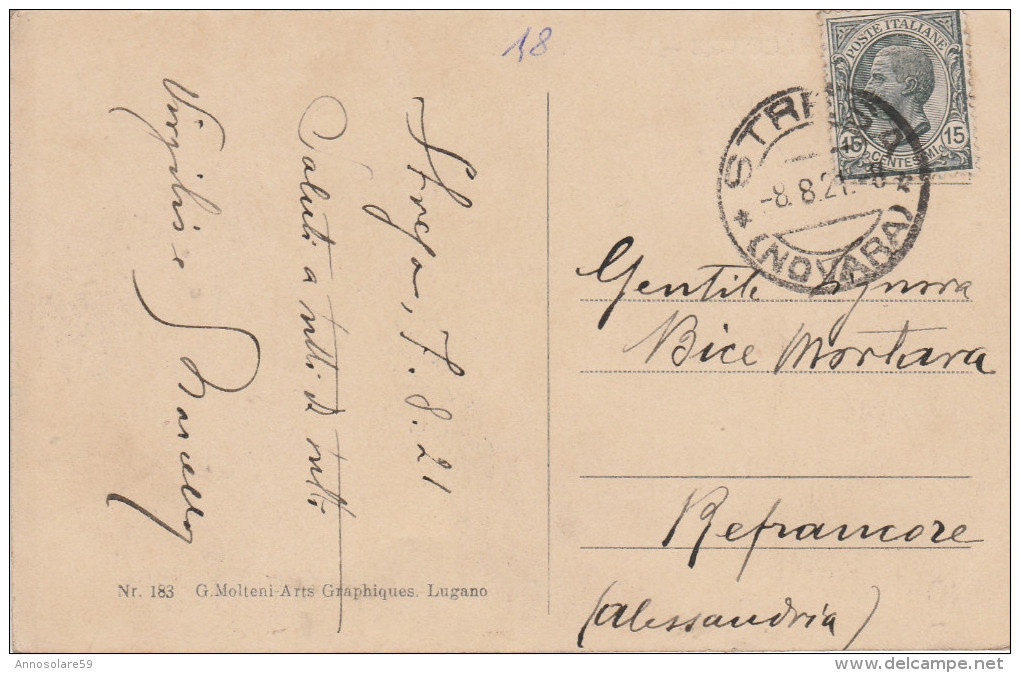 18
POSTE ITALIANE
15 15
CENTESIMI
STRESA
-8.8.21.
(NOVARA)
Stresa, 7.8.21
Saluti a tutti da tutti
Virgilio e
Gentile Signora
Bice Mortara
Refrancore
(Alessandria)
Nr. 183 G. Molteni-Arts Graphiques. Lugano
Annosolare59
delcampe.net